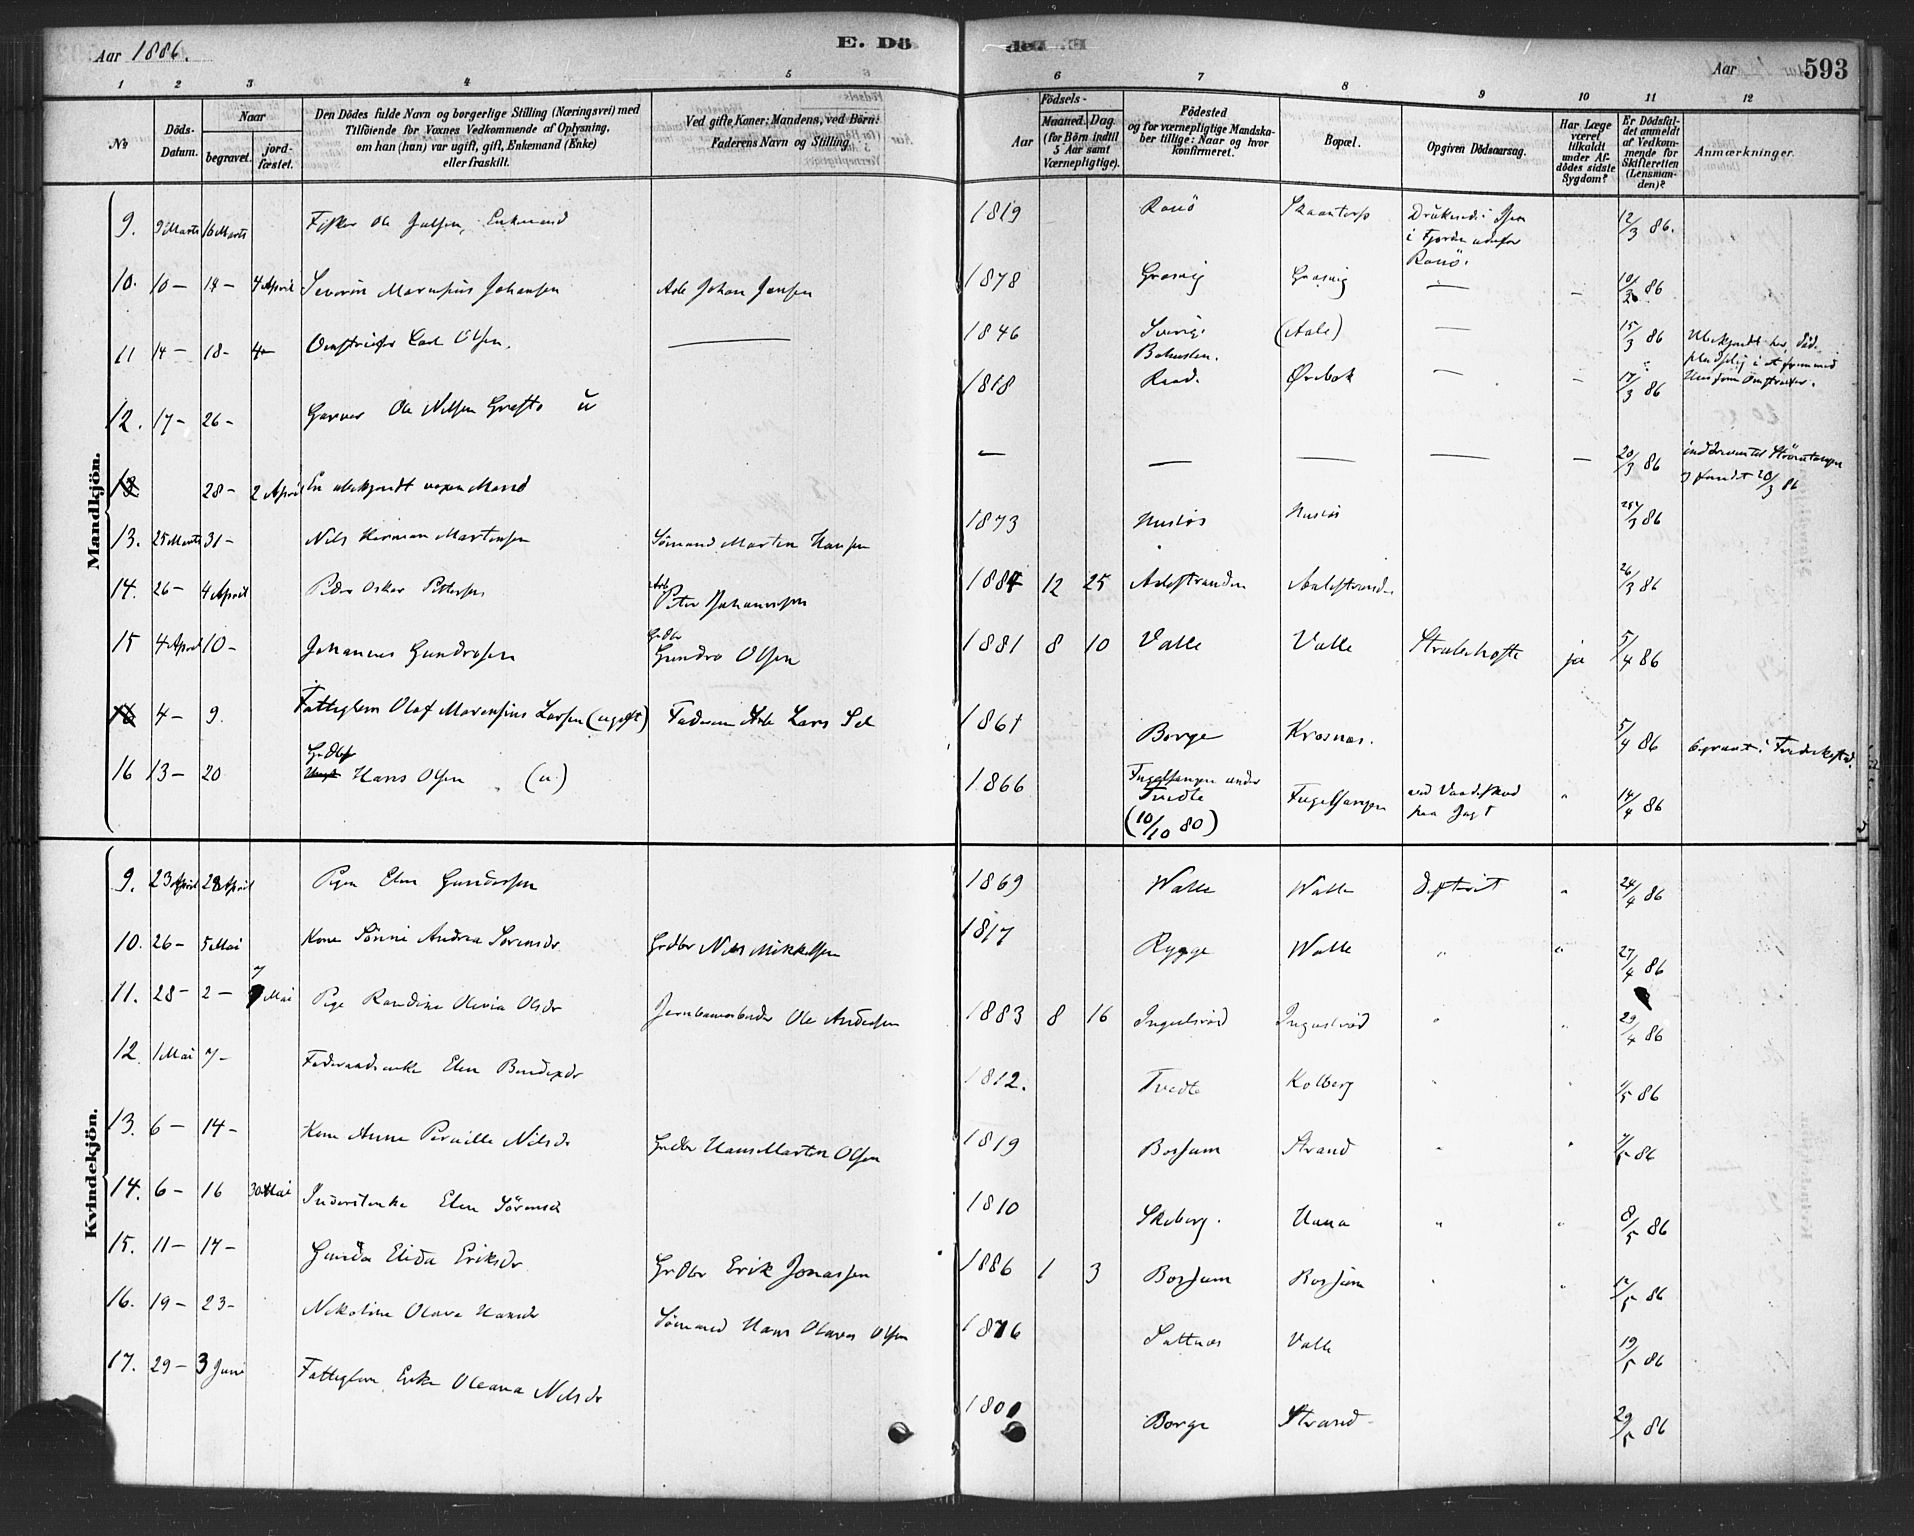 Aar 1886.
E. Dö
ded. E.
Aar
593
1 2 3 4 5 6 7 8 9 10 11 12
No
Döds-Datum.
Naar
begravet.
jord-fæstet.
Den Dödes fulde Navn og borgerlige Stilling (Næringsvei) med
Tilföiende for Voxnes Vedkommende af Oplysning,
om han (hun) var ugift, gift, Enkemand (Enke)
eller fraskilt.
Ved gifte Koner: Mandens, ved Börn:
Faderens Navn og Stilling.
Födsels-
Aar
Maaned. Dag.
(for Börn indtil
5 Aar samt
Værnepligtige).
Födested
og for værnepligtige Mandska-
ber tillige: Naar og hvor
konfirmeret.
Bopæl.
Opgiven Dödsaarsag.
Har Læge
været
tilkaldt
under Af-
dödes sidste
Sygdom?
Er Dödsfal-
det anmeldt
af Vedkom-
mende for
Skifteretten
(Lensman-
den)?
Anmærkninger.
Mandkjön.
9. 9 Marts 16 Marts Fisker Ole Julsen, Enkemand 1819 Rauö 12/3 86.
i Fjorden udenfor
Rauö.
10. 10 – 14 – 4 April Severin Marensius Johansen Arb Johan Jensen 1878 Gresvig Gresvig — – 86
11 14 – 18 – 4 – Carl Olsen. — 1846 Sverige (Aale) — 15/3 86 Ubekjendt her, död
Bohuslen.
12. 17 – 26 – Garver Ole Nilsen u 1818 Raad. Ørebek — – 17/3 86
13 28 – 2 April En ubekjendt voxen Mand — — — — – 20/3 86
fundet 20/3 86
13. 25 Marts 31 – Nils Herman Martinsen Sömand Martin Hansen 1873 Huslös Huslös 25/3 86
14. 26 – 4 April Peder Oskar Pettersen Arb Peter Johannesen 1884 12 25 26/3 86
15 4 April 10 – Johannes Gundrosen Grdbr Gundro Olsen 1881 8 10 Valle Valle Strubehoste ja 5/4 86
16 4 – 9. Fattiglem Olaf Marensius Larsen (ugift) Faderen Arb Lars 1861 Borge Krosnes. 5/4 86
16 13 – 20 Hans Olsen (u) 1866 Fugelsangen under
Tvedte
(10/10 80) Fugelsangen ved Vaadeskud
paa Jagt " 14/4 86
Kvindekjön.
9. 23 April 28 April Pigen Elen Gundersen 1869 Walle Walle Difterit " 24/4 86
10. 26 – 5 Mai Kone Andrea Sörensdr Grdbr Nils Mikkelsen 1817 Rygge Walle " " 27/4 86
11. 28 – 2 – 7 Mai Pige Randine Olivia Olsdr Jernbanearbeider Ole Andersen 1883 8 16 Ingulsröd Ingulsröd " " 29/4 86
12. 1 Mai 7 – Föderaadsenke Elen 1812. Tvedte Kolberg " " /5 86
13. 6 – 14 – Kone Anne Pernille Nilsdr Grdbr Hans Martin Olsen 1819 Borsum Strand " " 7/5 86
14. 6 – 16 30 Mai Inderstenke Elen Sörensdr 1810 Skeberg. " " 8/5 86
15. 11 – 17 – Gunda Elida Eriksdr Grdbr Erik Jonassen 1886 1 3 Borsum Borsum " " 12/5 86
16. 19 – 23 – Nikoline Olava Hansdr Sömand Hans Olaves Olsen 1876 Saltnes Valle 19/5 86
17. 29 – 3 Juni Fattiglem, Enke Oleana Nilsdr 1801 Borge Strand 29/5 86